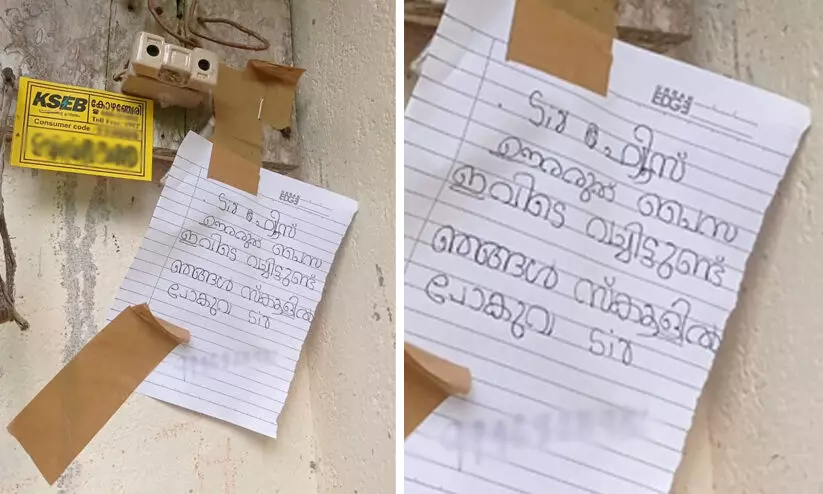 KSEB
കോഴഞ്ചേരി
Toll Free 1912
Consumer code
. Sir ഫ്യൂസ്
ഊരരുത് പൈസ
ഇവിടെ വച്ചിട്ടുണ്ട്
ഞങ്ങൾ സ്ക്കൂളിൽ
പോകുവ Sir
. Sir ഫ്യൂസ്
ഊരരുത് പൈസ
ഇവിടെ വച്ചിട്ടുണ്ട്
ഞങ്ങൾ സ്ക്കൂളിൽ
പോകുവ Sir